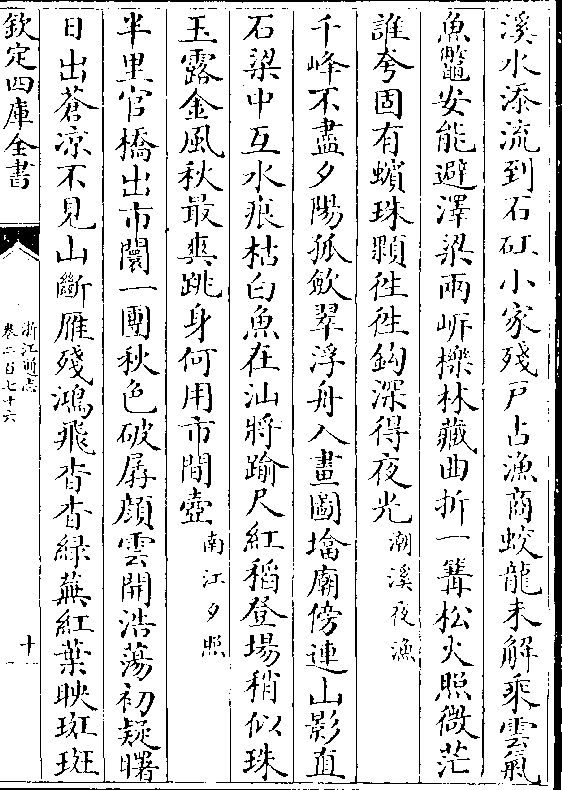 溪水添流到石矼小家殘戸占漁商蛟龍未解乘雲氣
魚鼈安能避澤梁兩岍擽林藏曲折一篝松火照微茫
誰夸固有蠙珠顆徃徃鈎深得夜光潮溪夜漁
千峰不盡夕陽孤歛翠浮舟入畫圖墖廟傍連山影直
石梁中互水痕枯白魚在汕將踰尺紅稻登場稍似珠
玉露金風秋最爽跳身何用市間壺南江夕照
半里官橋出市闤一團秋色破孱顔雲開浩蕩初疑曙
日出蒼凉不見山斷雁殘鴻飛杳杳緑蕪紅葉映斑斑
欽定四庫全書
浙江通志
卷二百七十六
十